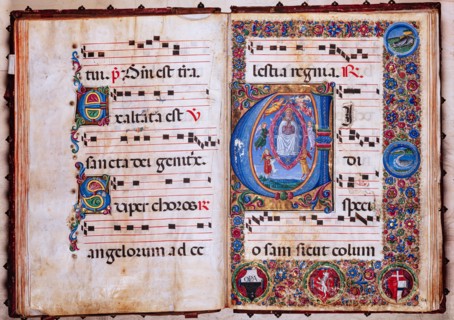 tui. est
Exaltata est V
sancta dei genitx.
Super choros R
angelorum ad ce
lestia regna. R.
VI
DI
speci
osam sicut colum